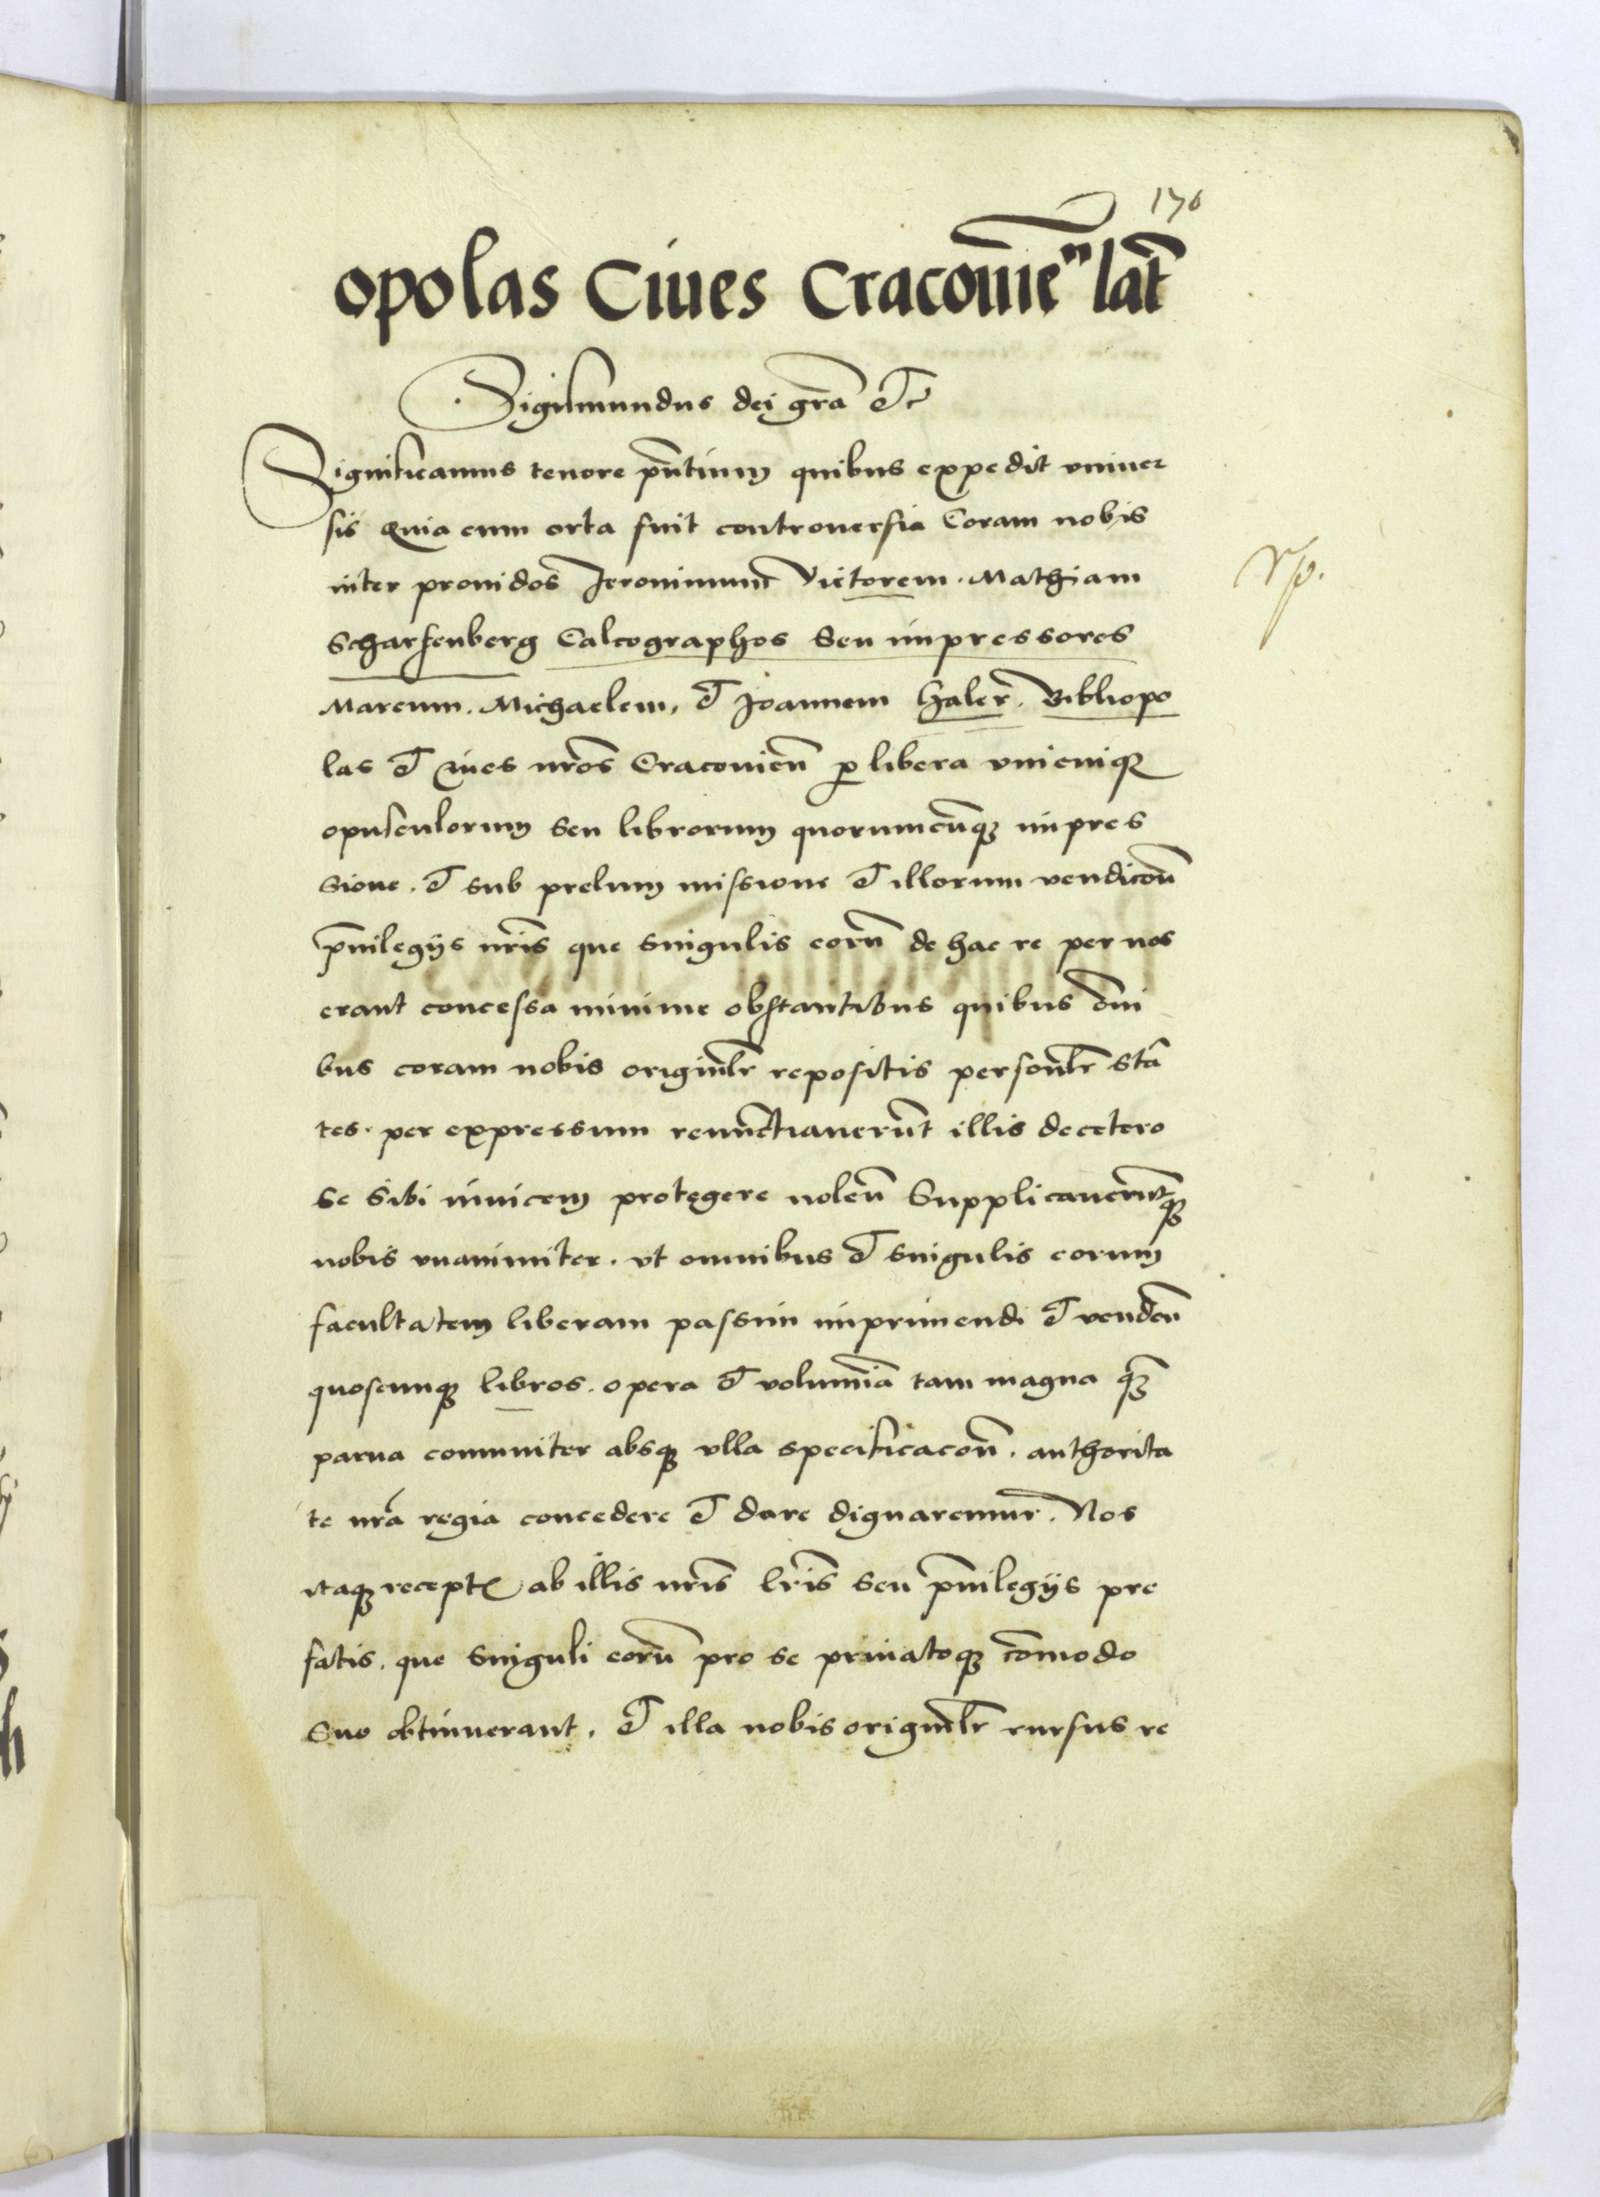 176
opolas Ciues Cracouien̄ lat̄
Sigismundus dei gr̄a et̄c
Significamus tenore pn̄tium quibus expedit vniuer
sis Quia cum orta fuit controuersia Coram nobis
inter prouidos Jeronimum Victorem. Mathiam
Scharfenberg Calcographos Seu impressores
Marcum. Michaelem, et Joannem Haler. Bibliopo
las et Ciues nr̄os Cracouien̄ p libera vnicuiq;
opusculorum seu librorum quorumcūq; impres
sione. et sub prelum missione et illorum vendicōn
pr̄uilegijs nr̄is que singulis eorū de hac re per nos
erant concessa minime obstantibus quibus om̄i
bus coram nobis originalr̄ repositis personalr̄ stā
tes. per expressum renunctiauerūt illis decetero
se sibi inuicem protegere nolen̄ Supplicauerūtq;
nobis vnanimiter. vt omnibus et singulis eorum
facultatem liberam passim imprimendi et venden̄
quoscunq; libros. opera et volumīa tam magna q̄
parua comuniter absq; vlla specificacōn. authorita
te nr̄a regia concedere et dare dignaremur. Nos
itaq; recept~ ab illis nr̄is lr̄is seu pr̄uilegijs pre
fatis. que singuli eorū pro se priuatoq; cōmodo
suo obtinuerant. et illa nobis originalr̄ rursus re